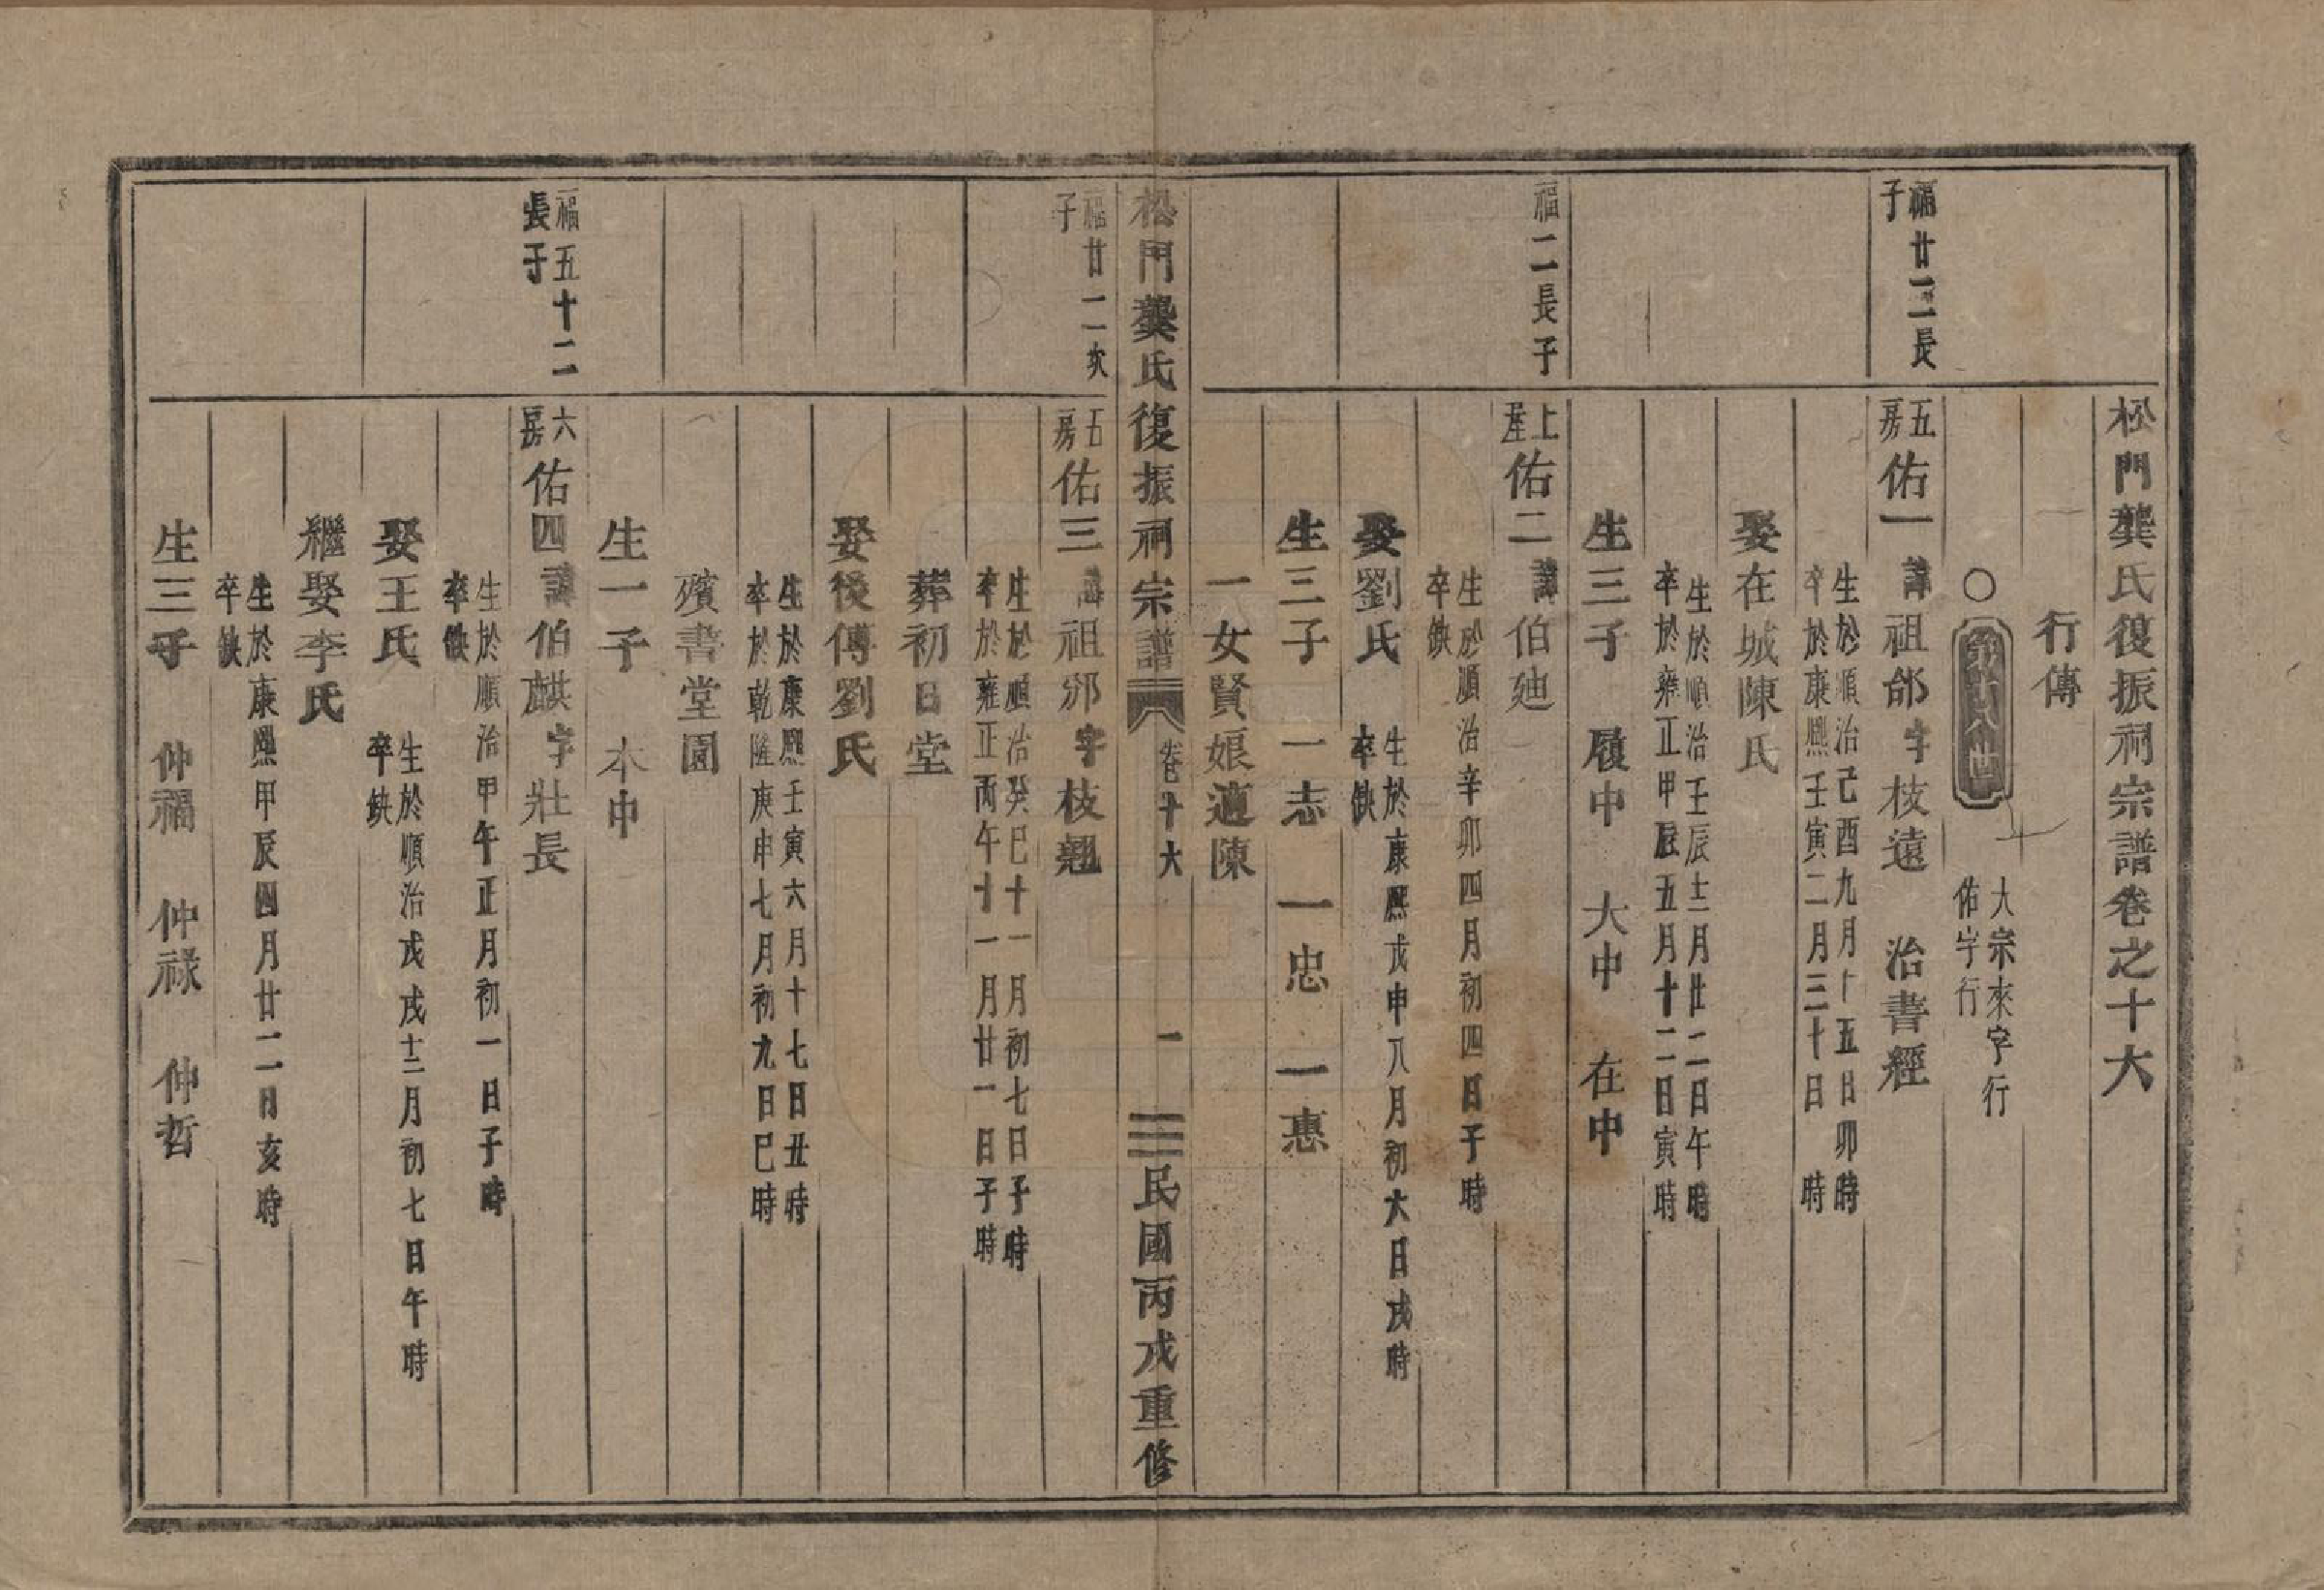 松門龔氏復振祠宗譜卷之十六
行傳
○
大宗來字行
佑字行
福廿二長
子
五
房
佑一諱祖郃字枝遠 治書經
生於順治己酉九月十五日卯時
卒於康熙壬寅二月三十日 時
娶在城陳氏
生於順治壬辰十二月廿二日午時
卒於雍正甲辰五月十二日寅時
生三子 履中 大中 在中
福二長子
上
屋
佑二諱伯迪
生於順治辛卯四月初四日子時
卒缺
娶劉氏
生於康熙戊申八月初六日戌時
卒缺
生三子 一志 一忠 一惠
一女賢娘適陳
松門龔氏復振祠宗譜 卷十六 一 民國丙戌重修
福廿二次
子
五
房
佑三諱祖邠字枝翹
生於順治癸巳十一月初七日子時
卒於雍正丙午十一月廿一日子時
葬初日堂
娶後傅劉氏
生於康熙壬寅六月十七日丑時
卒於乾隆庚申七月初九日巳時
殯書堂園
生一子 本中
福五十二
長子
六
房
佑四諱伯麒字壯長
生於順治甲午正月初一日子時
卒缺
娶王氏
生於順治戊戌十二月初七日午時
卒缺
繼娶李氏
生於康熙甲辰四月廿二日亥時
卒缺
生三子 仲福 仲祿 仲哲